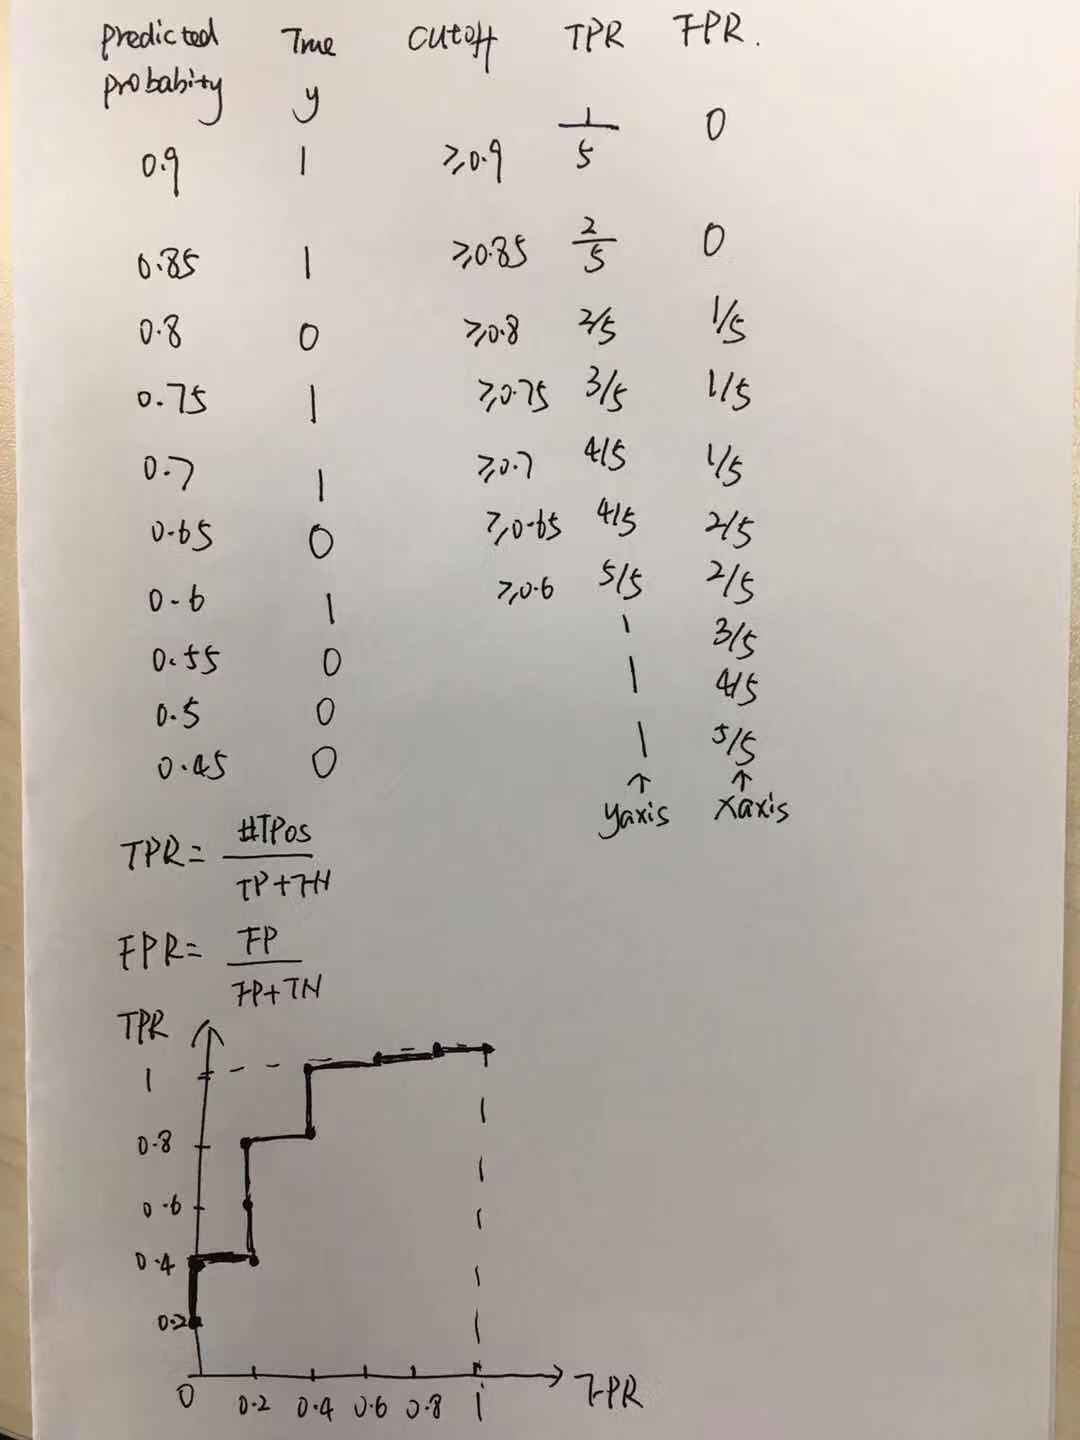 predicted True cutoff TPR FPR.
probabity y
0.9 1 ≥0.9 1/5 0
0.85 1 ≥0.85 2/5 0
0.8 0 ≥0.8 2/5 1/5
0.75 1 ≥0.75 3/5 1/5
0.7 1 ≥0.7 4/5 1/5
0.65 0 ≥0.65 4/5 2/5
0.6 1 ≥0.6 5/5 2/5
0.55 0 1 3/5
0.5 0 1 4/5
0.45 0 1 5/5
↑ ↑
yaxis xaxis
TPR= #TPos / TP+FN
FPR= FP / FP+TN
TPR
1
0.8
0.6
0.4
0.2
0 0.2 0.4 0.6 0.8 1 FPR